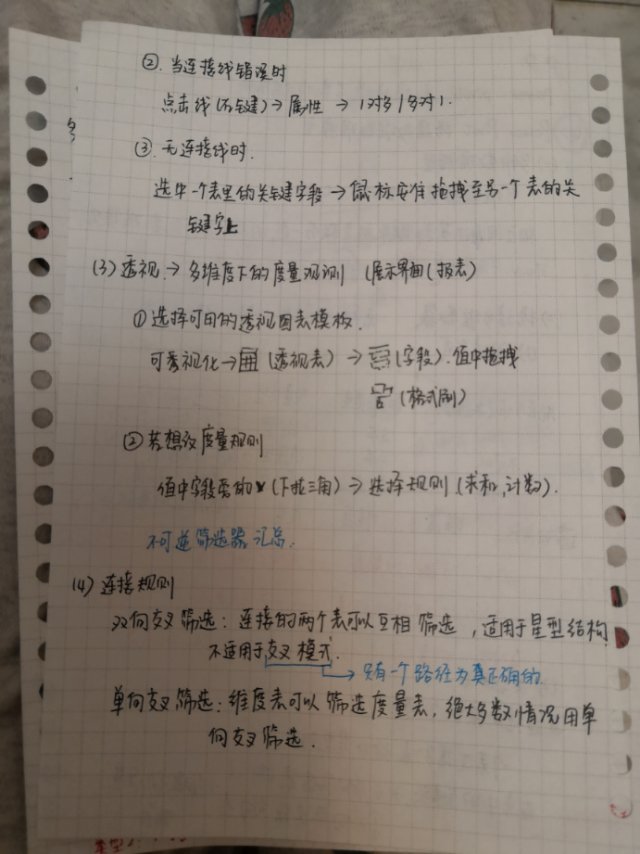 ②. 当连接线错误时
点击线(右键)→属性 → 1对多/多对1.
③. 无连接线时.
选中一个表里的关键字段→鼠标安住拖拽至另一个表的关
键字上
(3) 透视.→多维度下的度量观测 (展示界面(报表)
①选择可用的透视图表模板.
可视化→ (透视表) → (字段).值中拖拽
(格式刷)
②若想改度量规则
值中字段旁的∨(下拉三角)→选择规则(求和,计数).
不可逆筛选器汇总.
(4) 连接规则
双向交叉筛选:连接的两个表可以互相筛选,适用于星型结构
不适用于交叉模式.
→只有一个路径为真正确的
单向交叉筛选:维度表可以筛选度量表,绝大多数情况用单
向交叉筛选.